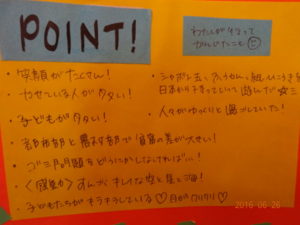 POINT!
わたしが行って
かんじたこと
・笑顔がたくさん!
・やせている人が多い!
・子どもが多い!
・都市部と農村部で貧富の差が大きい!
・ゴミ問題をどうにかしなければ…!
・キレイな空と星と海!
・子どもたちがキラキラしている♡目がクリクリ♡
・シャボン玉、ふうせん、紙ひこうき
日本から持っていって遊んだ☆
・人々がゆっくりと過ごしていた!
2016-06-26